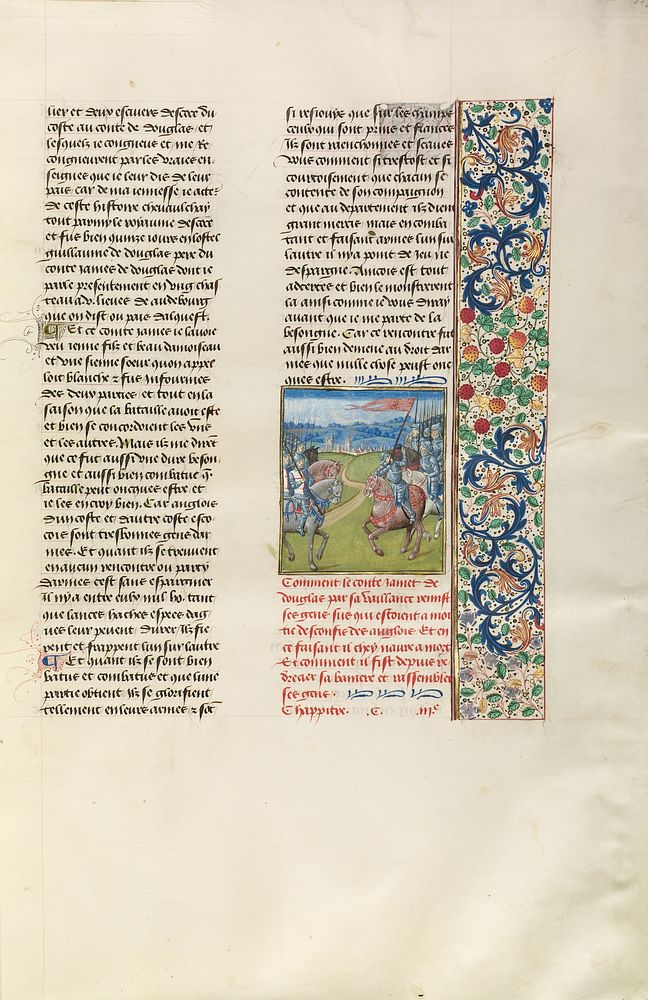 lier et deux escuiers descoce du
coste au conte de douglas et
lesquelz ie congneus et me re
congneurent par les vraies en
seignes que ie leur dis de leur
pais car de ma ieunesse ie acte᷑
de ceste histoire chevaulchay
tout parmy le royaume descoce
et fus bien quinze iours en lostel
guillaume de douglas pere du
conte james de douglas dont ie
parle presentement en ung chas
teau a .v. lieues de
que on dist ou pais dalquest.
Et ce conte james ie lavoie
veu ienne filz et beau damoiseau
et une sienne soeur quon appel
loit blanche & fus infourmes
des deux parties et tout en la
saison que la bataille avoit este
et bien se concordoient les uns
et les autres. Mais ilz me dirent
que ce fut aussi dure beson
gne et aussi bien combatue q̃
bataille peut oncques estre et
ie les en croy bien. Car anglois
dun coste et dautre coste esco
cois sont tresbonnes gens dar
mes. Et quant ilz se treuvent
en aucun rencontre ou party
darmes cest sans espargnier
il ny a entre eulz mil ho. tant
que lances haches espees dag
ues leur peuent durer ilz fie
rent et frappent lun sur lautre
Et quant ilz se sont bien
batus et combatus et que lune
partie obtient ilz se glorifient
tellement en leurs armes & sõt
si resiouys que sur les champs
ceulx qui sont prins et fiances
ilz sont ranchonnes et scaves
vous comment si trestost et si
courtoisement que chacun se
contente de son compaignon
et que au departement ilz dient
grant mercis mais en comba
tant et faisant armes lun sur
lautre il ny a point de jeu ne
despargne. Ancois est tout
acertes et bien le monstrerent
la ainsi comme ie vous diray
avant que ie me parte de la
besongne. Car ce rencontre fut
aussi bien demene au droit dar
mes que nulle chose peust onc
ques estre.
Comment le conte Jamet de
douglas par sa vaillance remist
ses gens sus qui estoient a moi
tie desconfis des anglois. Et en
ce faisant il navre a mort
Et comment il fist depuis re
drecier sa baniere et rassembler
ses gens.
Chappitre. .C. .iii.ᵉ